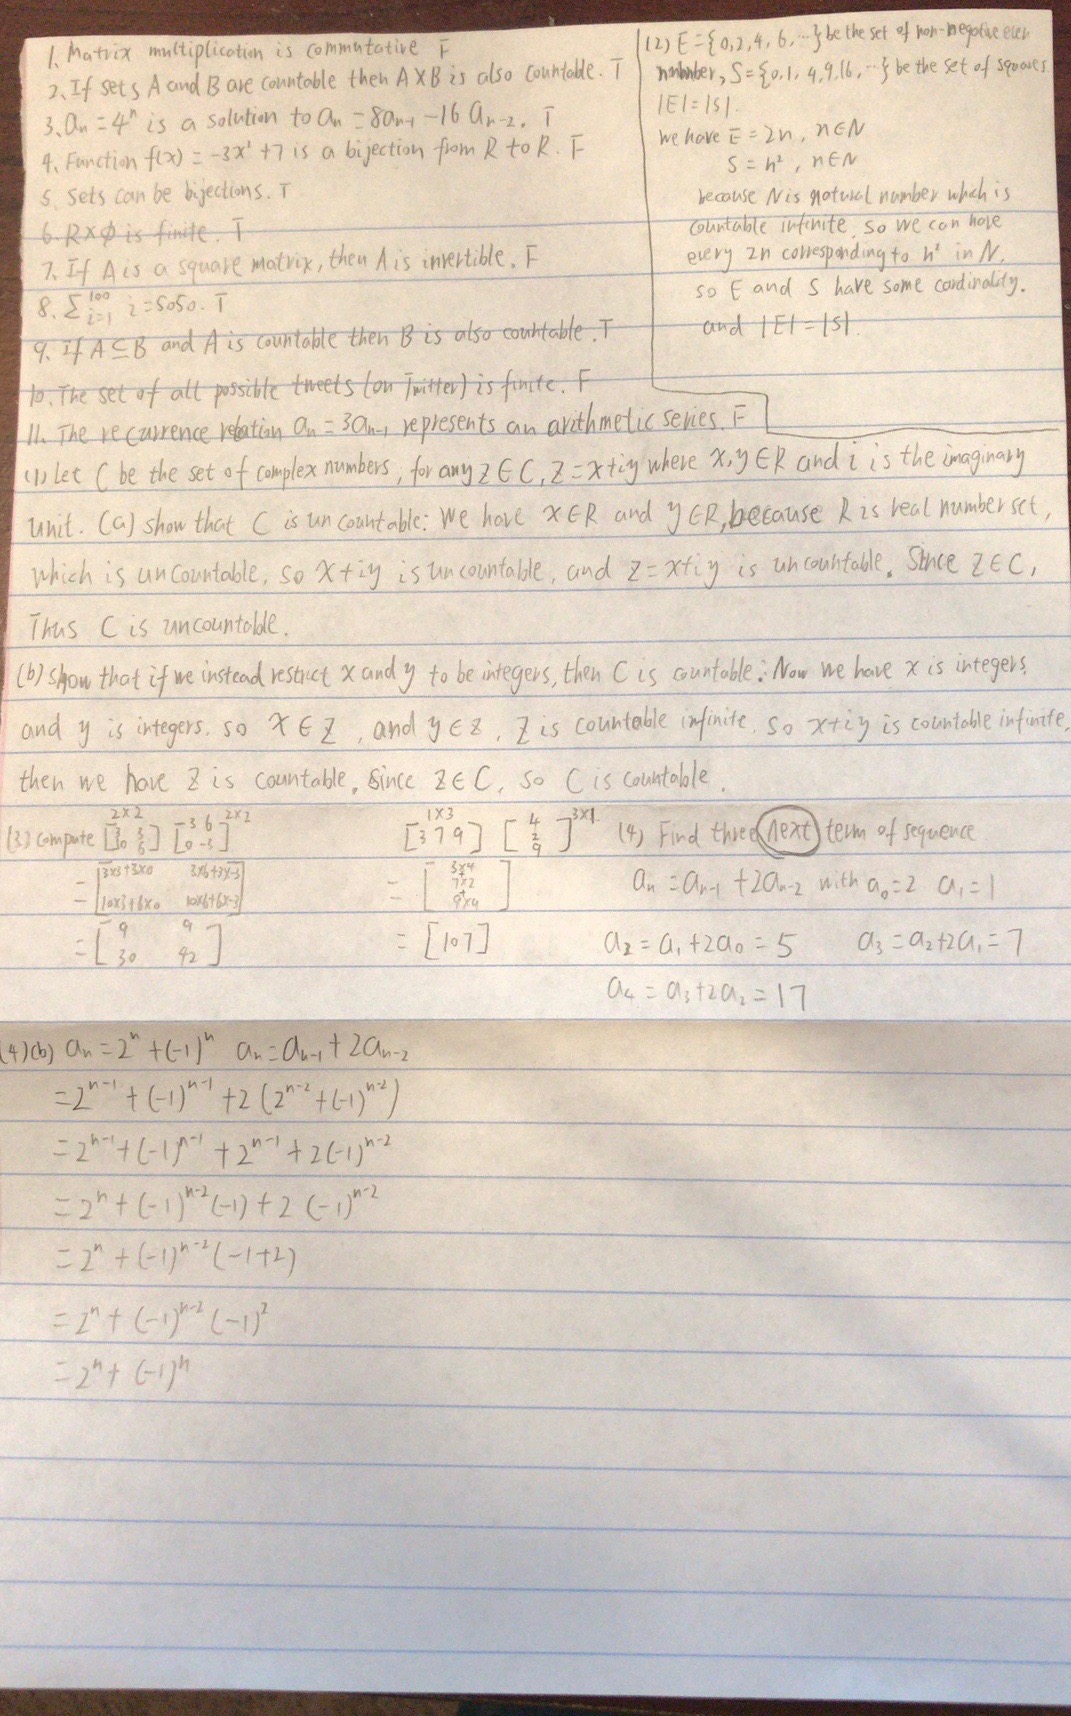 1. Matrix multiplication is commutative F
2. If sets A and B are countable then A×B is also countable. T
3. aₙ = 4ⁿ is a solution to aₙ = 8aₙ₋₁ - 16 aₙ₋₂. T
4. Function f(x) = -3x² + 7 is a bijection from R to R. F
5. Sets can be bijections. T
6. R×∅ is finite. T
7. If A is a square matrix, then A is invertible. F
8. Σᵢ₌₁¹⁰⁰ i = 5050. T
9. If A ⊆ B and A is countable then B is also countable. T
10. The set of all possible tweets (on Twitter) is finite. F
11. The recurrence relation aₙ = 3aₙ₋₁ represents an arithmetic series. F
(2) E = {0, 2, 4, 6, ...} be the set of non-negative even
number, S = {0, 1, 4, 9, 16, ...} be the set of squares
|E| = |S|.
We have E = 2n, n∈N
S = n², n∈N
because N is natural number which is
countable infinite, so we can have
every 2n corresponding to n² in N.
so E and S have same cardinality.
and |E| = |S|.
(1) Let C be the set of complex numbers, for any z ∈ C, z = x+iy where x, y ∈ R and i is the imaginary
unit. (a) show that C is uncountable: We have x∈R and y∈R, because R is real number set,
which is uncountable, so x+iy is uncountable, and z = x+iy is uncountable. Since z∈C,
Thus C is uncountable.
(b) show that if we instead restrict x and y to be integers, then C is countable: Now we have x is integers,
and y is integers. so x∈Z, and y∈Z, Z is countable infinite. so x+iy is countable infinite,
then we have z is countable. Since z∈C, so C is countable.
2×2 2×2
(3) compute [3 3; 10 6] [3 6; 0 -3]
= [3×3+3×0 3×6+3×-3; 10×3+6×0 10×6+6×-3]
= [9 9; 30 42]
1×3 3×1
[3 7 9] [4; 2; 9]
= [3×4 + 7×2 + 9×9]
= [107]
(4) Find three next term of sequence
aₙ = aₙ₋₁ + 2aₙ₋₂ with a₀ = 2 a₁ = 1
a₂ = a₁ + 2a₀ = 5 a₃ = a₂ + 2a₁ = 7
a₄ = a₃ + 2a₂ = 17
(4)(b) aₙ = 2ⁿ + (-1)ⁿ aₙ = aₙ₋₁ + 2aₙ₋₂
= 2ⁿ⁻¹ + (-1)ⁿ⁻¹ + 2(2ⁿ⁻² + (-1)ⁿ⁻²)
= 2ⁿ⁻¹ + (-1)ⁿ⁻¹ + 2ⁿ⁻¹ + 2(-1)ⁿ⁻²
= 2ⁿ + (-1)ⁿ⁻²(-1) + 2(-1)ⁿ⁻²
= 2ⁿ + (-1)ⁿ⁻²(-1+2)
= 2ⁿ + (-1)ⁿ⁻²(-1)²
= 2ⁿ + (-1)ⁿ